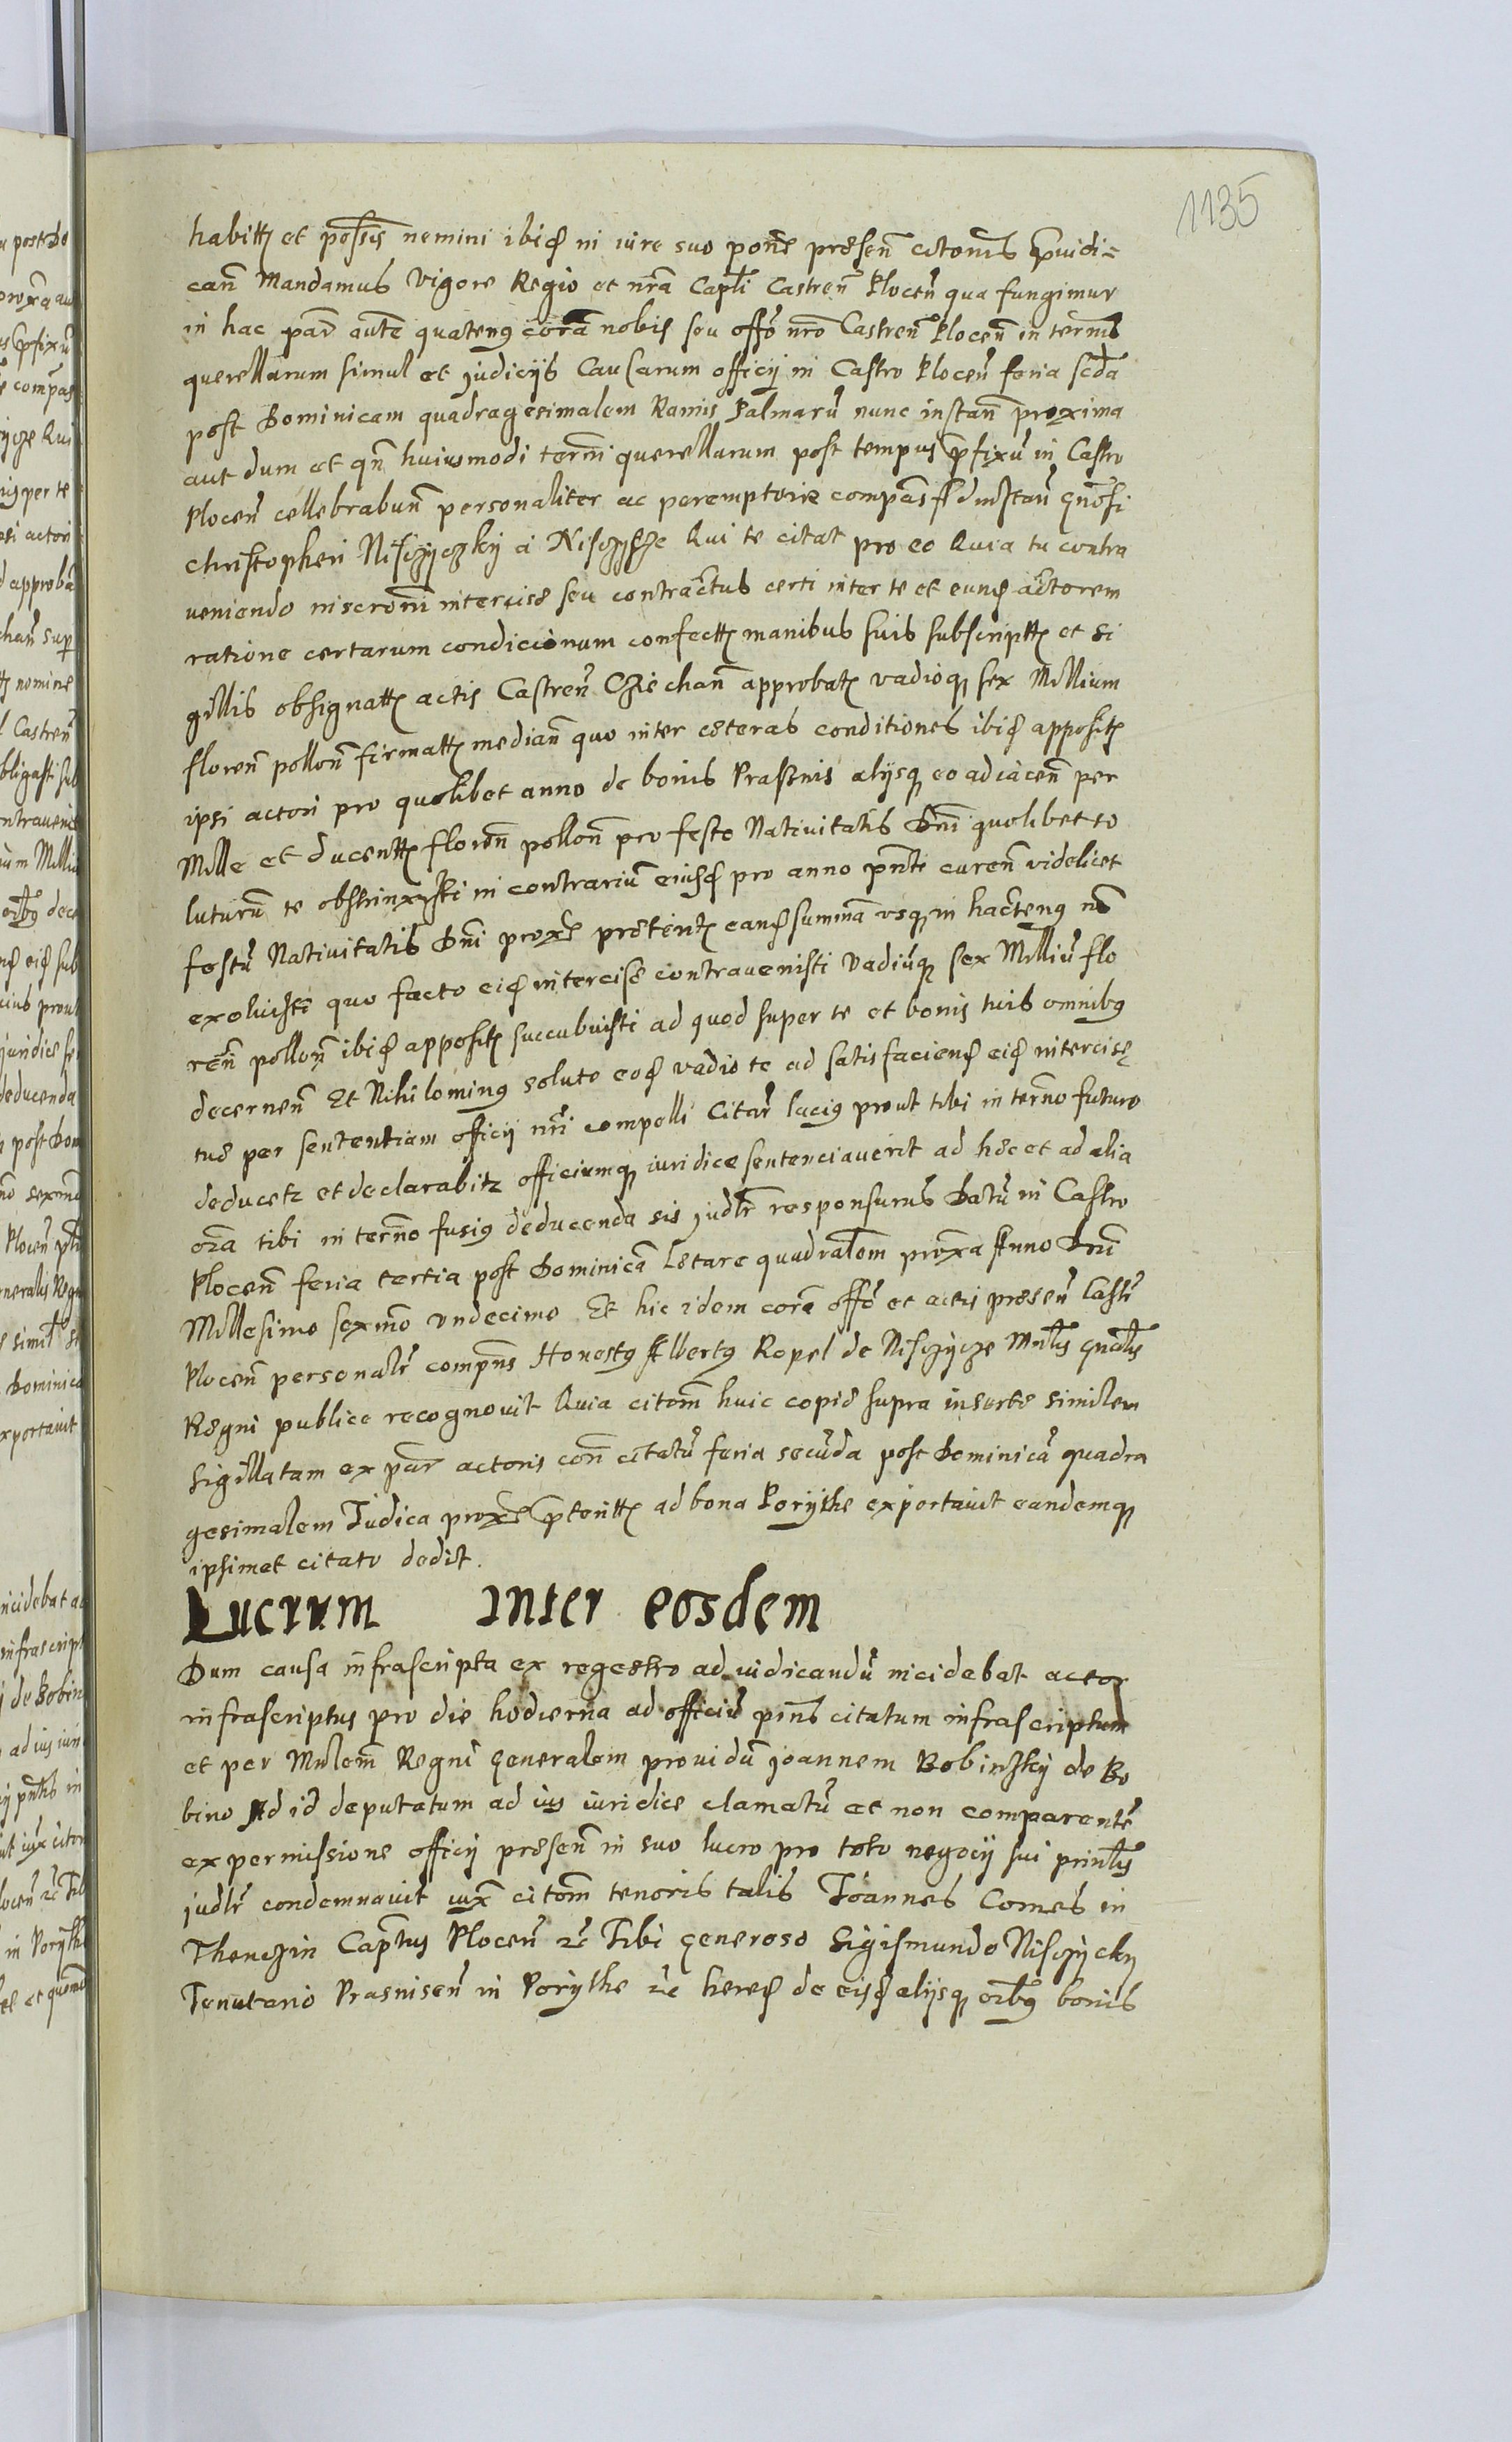 1135
habittȝ et possis nemini ibiđ in iure suo pone presen̄ citonis p̄iudi=
can̄ Mandamus Vigore Regio et nr̄a Captłi Castren̄ Plocen̄ qua fungimur
in hac par̄ aut̄e quateng cora nobis seu offō nr̄o Castren̄ Plocen̄ in ternis
querellarum simul et judicijs Causarum officij in Castro Plocen̄ feria scd̄a
post Dominicam quadragesimalem Ramis Palmarū nunc instan̄ proxima
aut dum et qn̄ huiusmodi tern̄i querellarum post tempus p̄fixū in Castro
Plocen̄ cellebrabun̄ personaliter ac peremptorie compās Ad instan̄ gn̄osi
Christopheri Nisczyczky a Nisczycze Qui te citat pro eo Quia tu contra
ueniendo inscron̄i intercise seu contractus certi inter te et eunđ actorem
ratione certarum condicionum confecttȝ manibus suis subscripttȝ et si
gillis obsignattȝ actis Castren̄ Cziechan̄ approbatȝ vadioqȝ sex Millium
floren̄ pollon̄ firmattȝ median̄ quo inter ceteras conditiones ibiđ appositȝ
ipsi actori pro quolibet anno de bonis Prasnis alijsqȝ eo adiacen̄ per
Mille et ducenttȝ floren̄ pollon̄ pro festo Natiuitatis Dn̄i quolibet so
luturū te obstrinxisti in contrariū eiusđ pro anno pn̄ti curen̄ videlicet
festū Natiuitatis Dn̄i proxe preteritȝ eanđ summā vsqȝ in hacteng nō
exoluisti quo facto eiđ intercise contrauenisti Vadiūqȝ sex Milliū flo
ren̄ pollon̄ ibiđ appositȝ succubuisti ad quod super te et bonis tuis omnibg
decernen̄ Et Nihiloming soluto eođ vadio te ad satisfacienđ eiđ intercisę
tue per sententiam officij nr̄i compelli Citar̄ lacig prout tibi in tern̄o futuro
deducetz et declarabitz officiumqȝ iuridice sentenciauerit ad hec et ad alia
oīa tibi in tern̄o fusig deducenda sis judłr responsurus Datū in Castro
Plocen̄ feria tertia post Dominicā Letare quadralem prox̄a Anno Dn̄i
Millesimo sexm̄o vndecimo Et hic idem corā offō et actis presen̄ Castr̄
Plocen̄ personalr̄ compn̄s Honestg Albertg Ropel de Nisczycze Mnłis gnałis
Regni publice recognouit Quia citom̄ huic copie supra inserte similem
sigillatam ex par̄ actoris con̄ citatū feria secūda post Dominicā quadra
gesimalem Iudica proxe p̄terittȝ ad bona Porythe exportauit eandemqȝ
ipsimet citato dedit.
Lucrum Inter eosdem
Dum causa infrascripta ex regestro ad iudicandū incidebat actor
infrascriptus pro die hodierna ad officiū pn̄s citatum infrascriptum
et per Mnlem̄ Regni generalem prouidū joannem Bobinsky de Bo
bino Ad id deputatum ad ius iuridice clamatū et non comparentē
ex permissione officij presen̄ in suo lucro pro toto negocij sui prinłis
judłr condemnauit iux̄ citom̄ tenoris talis Ioannes Comes in
Thenczin Captn̄us Plocen̄ zc̄ Tibi generoso Sigismundo Nisczycky
Tenutario Prasnisen̄ in Porythe zc̄ heređ de eisđ alijsqȝ oībg bonis